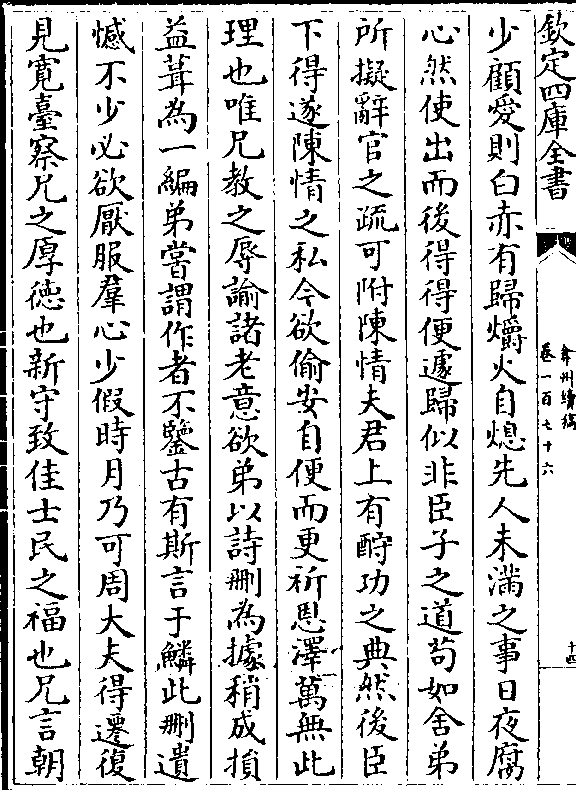 欽定四庫全書
弇州續稿
卷一百七十六
十四
少顧愛則白赤有歸爝火自熄先人未滿之事日夜腐
心然使出而後得得便遽歸似非臣子之道苟如舍弟
所擬辭官之疏可附陳情夫君上有酧功之典然後臣
下得遂陳情之私今欲偷安自便而更祈恩澤萬無此
理也唯兄教之辱諭諸老意欲弟以詩刪為據稍成損
益葺為一編弟嘗謂作者不鑒古有斯言于鱗此刪遺
憾不少必欲厭服羣心少假時月乃可周大夫得遷復
見寛臺察兄之厚徳也新守致佳士民之福也兄言朝